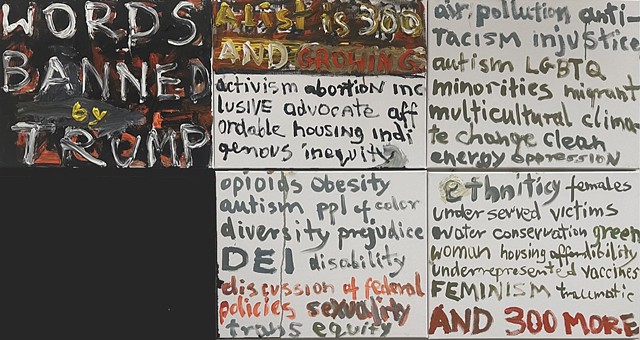 WORDS
BANNED
by
TRUMP
A List is 300
AND GROWING
activism abortion inc
LUSIVE advocate aff
ordable housing indi
genous inequity
air pollution anti-
racism injustice
autism LGBTQ
minorities migrant
multicultural clima
te change clean
energy oppression
opioids obesity
autism ppl of color
diversity prejudice
DEI disability
discussion of federal
policies sexuality
trans equity
ethnitiсy females
underserved victims
water conservation green
woman housing affordibility
underrepresented vaccines
FEMINISM traumatic
AND 300 MORE